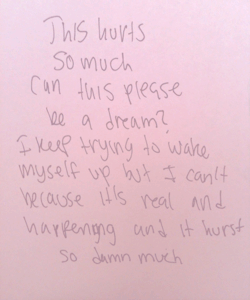 This hurts
so much
Can this please
be a dream?
I keep trying to wake
myself up but I can't
because it's real and
happening and it hurst
so damn much